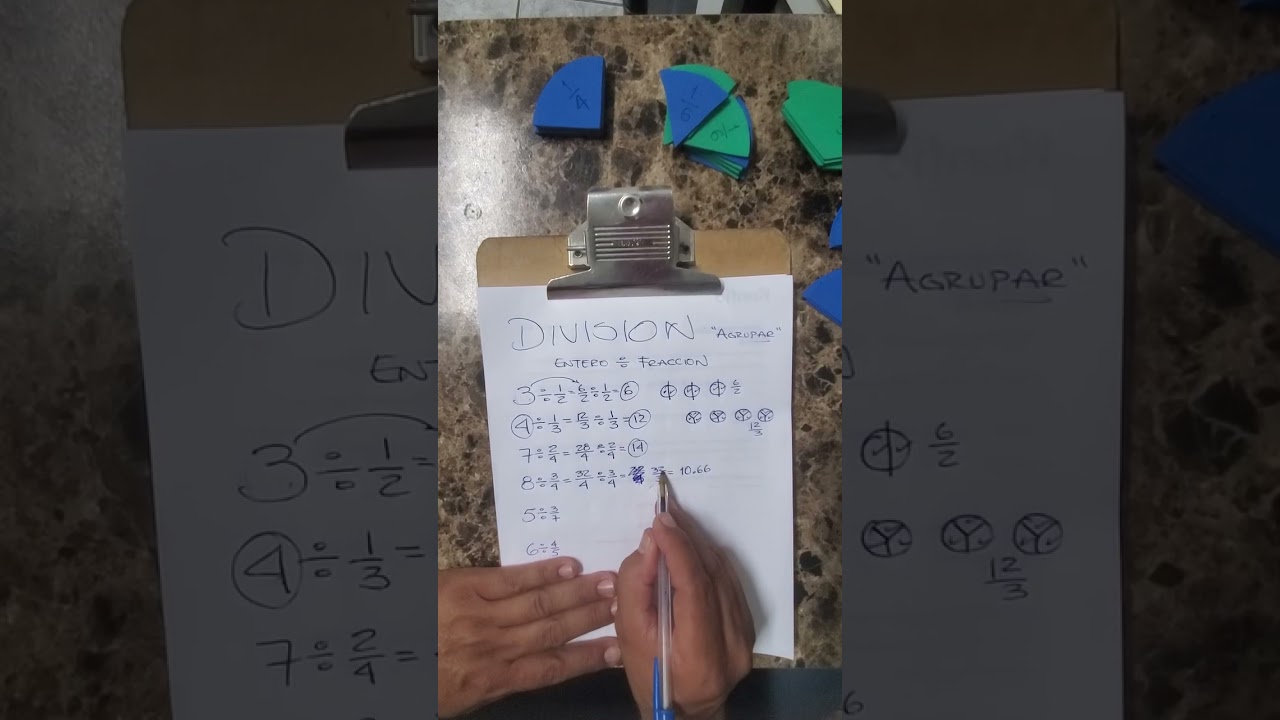 1/4
1/6
1/6
DIVISION "AGRUPAR"
ENTERO ÷ FRACCION
3 ÷ 1/2 = 6/2 ÷ 1/2 = 6 6/2
4 ÷ 1/3 = 12/3 ÷ 1/3 = 12 12/3
7 ÷ 2/4 = 28/4 ÷ 2/4 = 14
8 ÷ 3/4 = 32/4 ÷ 3/4 = = 10.66
5 ÷ 3/7
6 ÷